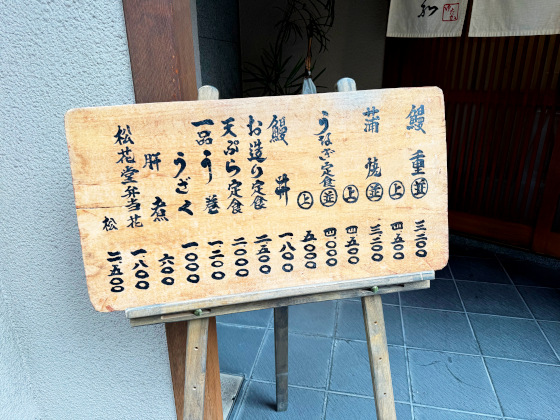 鰻重 並 三二〇〇
上 四五〇〇
蒲焼 並 三二〇〇
上 四五〇〇
うなぎ定食 並 四〇〇〇
上 五〇〇〇
鰻丼 一八〇〇
お造り定食 二五〇〇
天ぷら定食 二〇〇〇
一品 う巻 一二〇〇
うざく 一〇〇〇
肝煮 六〇〇
松花堂弁当 花 一八〇〇
松 二五〇〇